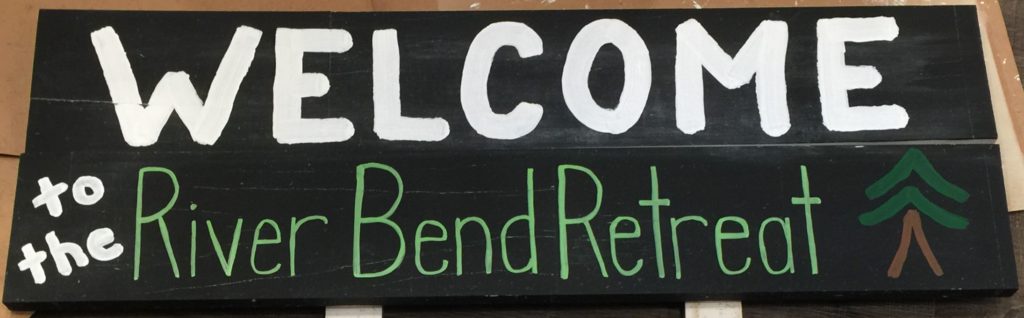 WELCOME
to the River Bend Retreat